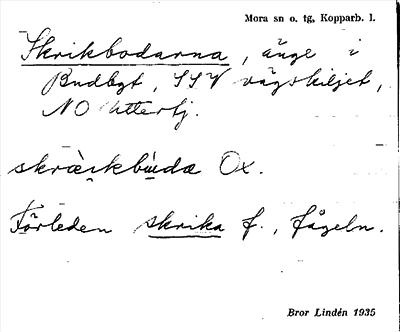 Mora sn o. tg, Kopparb. l.
Skrikbodarna, änge i
Budbgt, SSV vägskiljet,
NO Uttertj.
skrὰi̯kbu̇dα Ox.
Förleden skrika f., fågeln.
Bror Lindén 1935